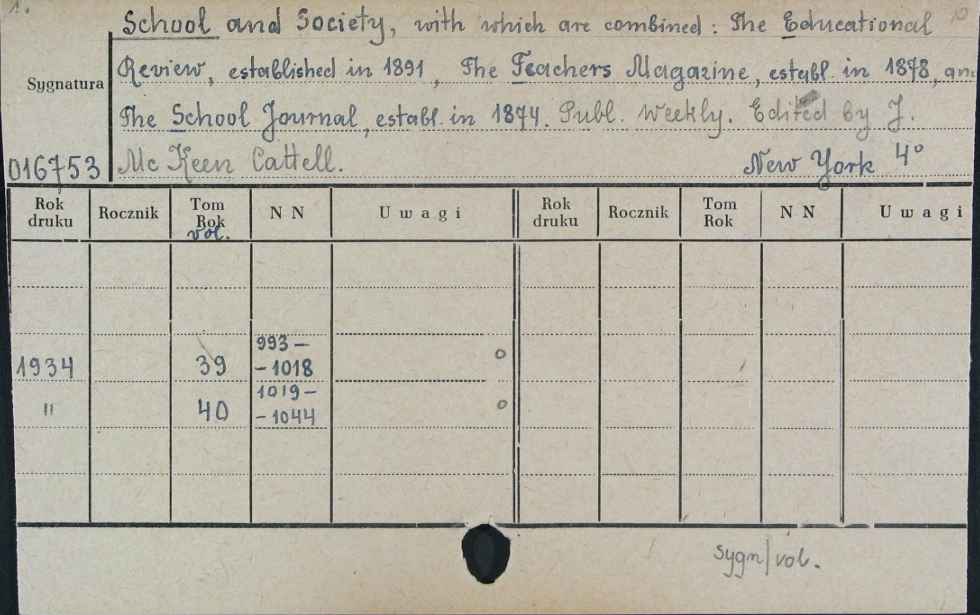 1.
School and Society, with which are combined: The Educational
Review, established in 1891, The Teachers Magazine, establ. in 1878, an
Sygnatura
The School Journal, establ. in 1874. Publ. weekly. Edited by J.
016753 Mc Keen Cattell. New York 4°
Rok druku Rocznik Tom Rok vol. N N Uwagi Rok druku Rocznik Tom Rok N N Uwagi
993 –
1934 39 – 1018 o
1019 –
" 40 – 1044 o
sygn/vol.